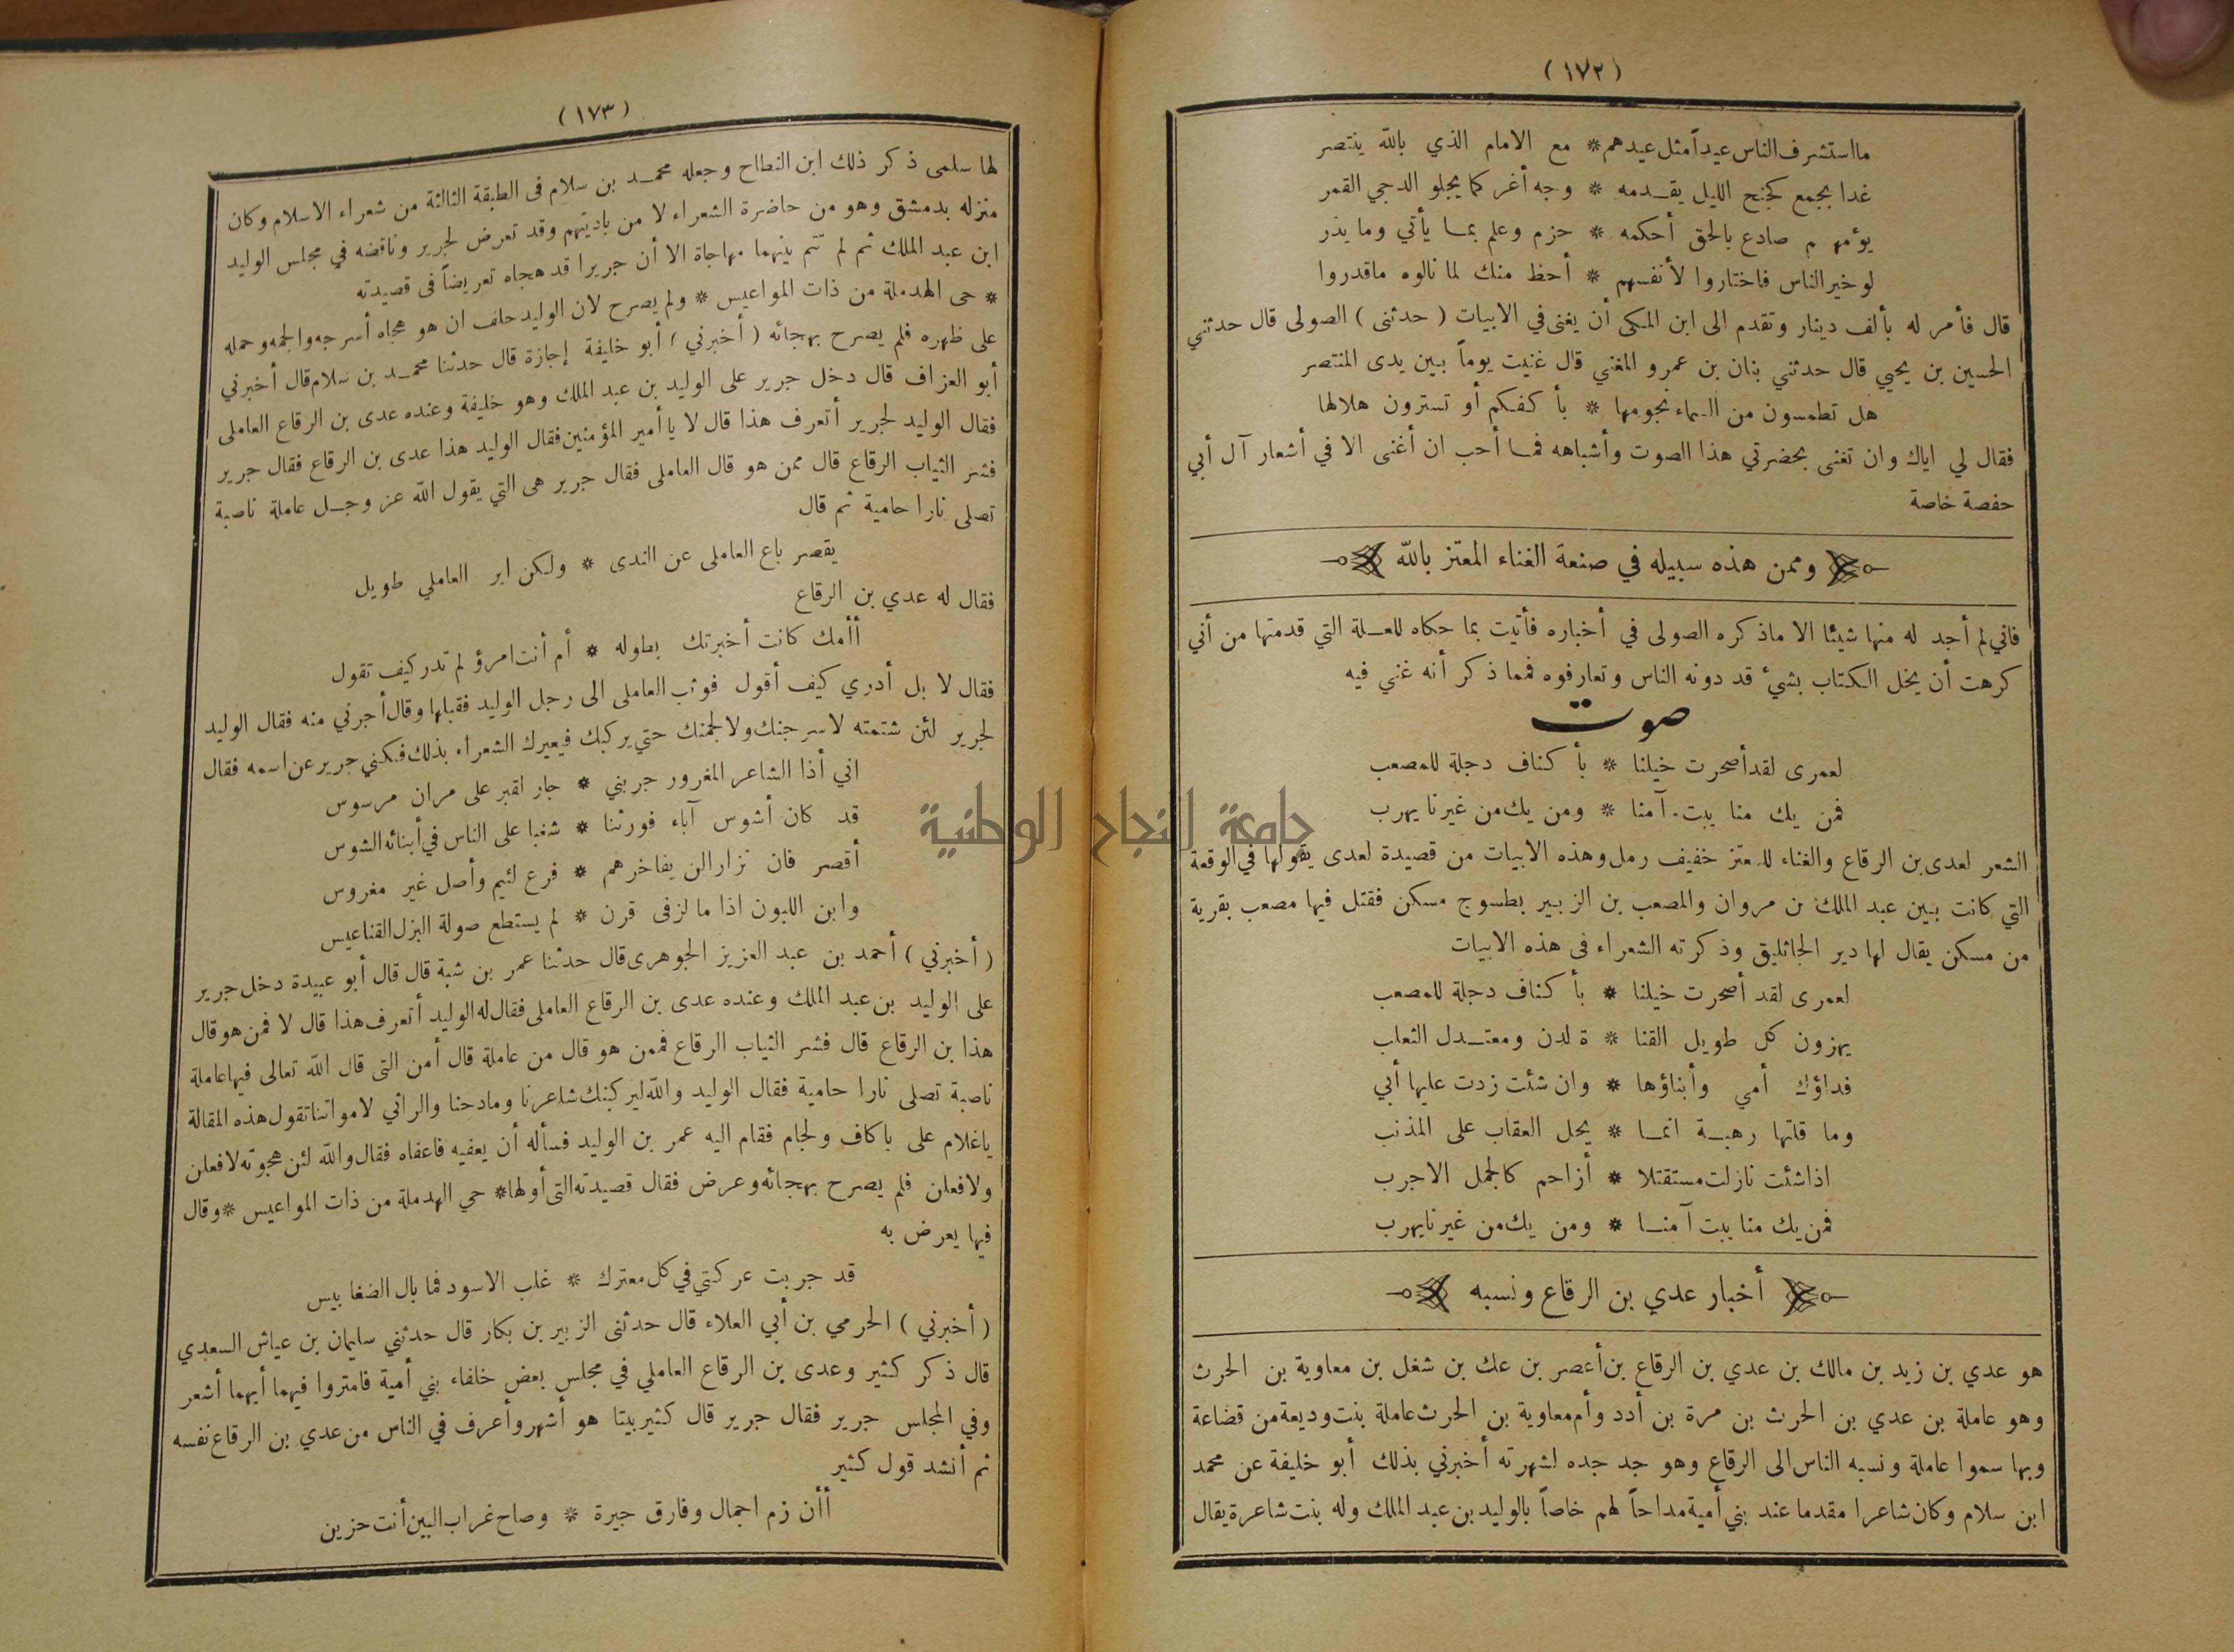 (١٧٢)
ما استشرف الناس عيداً مثل عيدهم * مع الامام الذي بالله ينتصر
غدا بجمع كجنح الليل يقدمه * وجه أغر كما يجلو الدجي القمر
يؤمهم صادع بالحق أحكمه * حزم وعلم بما يأتي وما يذر
لو خير الناس فاختاروا لأنفسهم * أحظ منك لما نالوه ماقدروا
قال فأمر له بألف دينار وتقدم الى ابن المكى أن يغنى في الابيات ( حدثنى ) الصولى قال حدثني
الحسين بن يحيي قال حدثني بنان بن عمرو المغني قال غنيت يوماً بين يدى المنتصر
هل تطمسون من السماء نجومها * بأكفكم أو تسترون هلالها
فقال لي اياك وان تغنى بحضرتي هذا الصوت وأشباهه فما أحب ان أغنى الا في أشعار آل أبي
حفصة خاصة
وممن هذه سبيله في صنعة الغناء المعتز بالله
فاني لم أجد له منها شيئا الا ماذكره الصولى في أخباره فأتيت بما حكاه للعلة التي قدمتها من أني
كرهت أن يخل الكتاب بشيء قد دونه الناس وتعارفوه فمما ذكر أنه غني فيه
صوت
لعمرى لقد أصحرت خيلنا * بأكناف دجلة للمصعب
فمن يك منا يبت آمنا * ومن يك من غيرنا يهرب
الشعر لعدى بن الرقاع والغناء للمعتز خفيف رمل وهذه الابيات من قصيدة لعدى يقولها في الوقعة
التي كانت بين عبد الملك بن مروان والمصعب بن الزبير بطسوج مسكن فقتل فيها مصعب بقرية
من مسكن يقال لها دير الجاثليق وذكرته الشعراء فى هذه الابيات
لعمرى لقد أصحرت خيلنا * بأكناف دجلة للمصعب
يهزون كل طويل القنا * ة لدن ومعتدل الثعلب
فداؤك أمي وأبناؤها * وان شئت زدت عليها أبي
وما قلتها رهبة انما * يحل العقاب على المذنب
اذا شئت نازلت مستقتلا * أزاحم كالجمل الاجرب
فمن يك منا يبت آمنا * ومن يك من غيرنا يهرب
أخبار عدي بن الرقاع ونسبه
هو عدي بن زيد بن مالك بن عدي بن الرقاع بن أعصر بن عك بن شغل بن معاوية بن الحرث
وهو عاملة بن عدي بن الحرث بن مرة بن أدد وأم معاوية بن الحرث عاملة بنت وديعة من قضاعة
وبها سموا عاملة ونسبه الناس الى الرقاع وهو جد جده لشهرته أخبرني بذلك أبو خليفة عن محمد
ابن سلام وكان شاعرا مقدما عند بني أمية مداحاً لهم خاصاً بالوليد بن عبد الملك وله بنت شاعرة يقال
(١٧٣)
لها سلمى ذكر ذلك ابن النطاح وجعله محمد بن سلام فى الطبقة الثالثة من شعراء الاسلام وكان
منزله بدمشق وهو من حاضرة الشعراء لا من باديتهم وقد تعرض لجرير وناقضه في مجلس الوليد
ابن عبد الملك ثم لم تتم بينهما مهاجاة الا أن جريرا قد هجاه تعريضاً فى قصيدته
* حى الهدملة من ذات المواعيس * ولم يصرح لان الوليد حلف ان هو هجاه أسرجه وألجمه وحمله
على ظهره فلم يصرح بهجائه ( أخبرني ) أبو خليفة إجازة قال حدثنا محمد بن سلام قال أخبرني
أبو العزاف قال دخل جرير على الوليد بن عبد الملك وهو خليفة وعنده عدى بن الرقاع العاملى
فقال الوليد لجرير أتعرف هذا قال لا يا أمير المؤمنين فقال الوليد هذا عدى بن الرقاع فقال جرير
فشر الثياب الرقاع قال ممن هو قال العاملى فقال جرير هى التي يقول الله عز وجل عاملة ناصبة
تصلى نارا حامية ثم قال
يقصر باع العاملى عن الندى * ولكن اير العاملي طويل
فقال له عدي بن الرقاع
أأمك كانت أخبرتك بطوله * أم أنت امرؤ لم تدر كيف تقول
فقال لا بل أدري كيف أقول فوثب العاملى الى رجل الوليد فقبلها وقال أجرني منه فقال الوليد
لجرير لئن شتمته لاسرجنك ولالجمنك حتي يركبك فيعيرك الشعراء بذلك فكنى جرير عن اسمه فقال
اني أذا الشاعر المغرور جربني * جار لقبر على مران مرسوس
قد كان أشوس آباء فورثنا * شغبا على الناس في أبنائه الشوس
أقصر فان نزارا لن يفاخرهم * فرع لئيم وأصل غير مغروس
وابن اللبون اذا ما لز فى قرن * لم يستطع صولة البزل القناعيس
( أخبرني ) أحمد بن عبد العزيز الجوهرى قال حدثنا عمر بن شبة قال قال أبو عبيدة دخل جرير
على الوليد بن عبد الملك وعنده عدى بن الرقاع العاملى فقال له الوليد أتعرف هذا قال لا فمن هو قال
هذا بن الرقاع قال فشر الثياب الرقاع فممن هو قال من عاملة قال أمن التى قال الله تعالى فيها عاملة
ناصبة تصلى نارا حامية فقال الوليد والله ليركبنك شاعرنا ومادحنا والراثي لامواتنا تقول هذه المقالة
ياغلام على باكاف ولجام فقام اليه عمر بن الوليد فسأله أن يعفيه فاعفاه فقال والله لئن هجوته لافعلن
ولافعلن فلم يصرح بهجائه وعرض فقال قصيدته التى أولها * حي الهدملة من ذات المواعيس * وقال
فيها يعرض به
قد جربت عركتي في كل معترك * غلب الاسود فما بال الضغابيس
( أخبرني ) الحرمي بن أبي العلاء قال حدثنى الزبير بن بكار قال حدثني سليمان بن عياش السعدي
قال ذكر كثير وعدى بن الرقاع العاملي في مجلس بعض خلفاء بني أمية فامتروا فيهما أيهما أشعر
وفي المجلس جرير فقال جرير قال كثير بيتا هو أشهر وأعرف في الناس من عدي بن الرقاع نفسه
ثم أنشد قول كثير
أأن زم اجمال وفارق جيرة * وصاح غراب البين أنت حزين
جامعة النجاح الوطنية